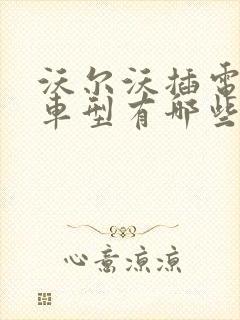 沃尔沃插电
车型有哪些
心意凉凉